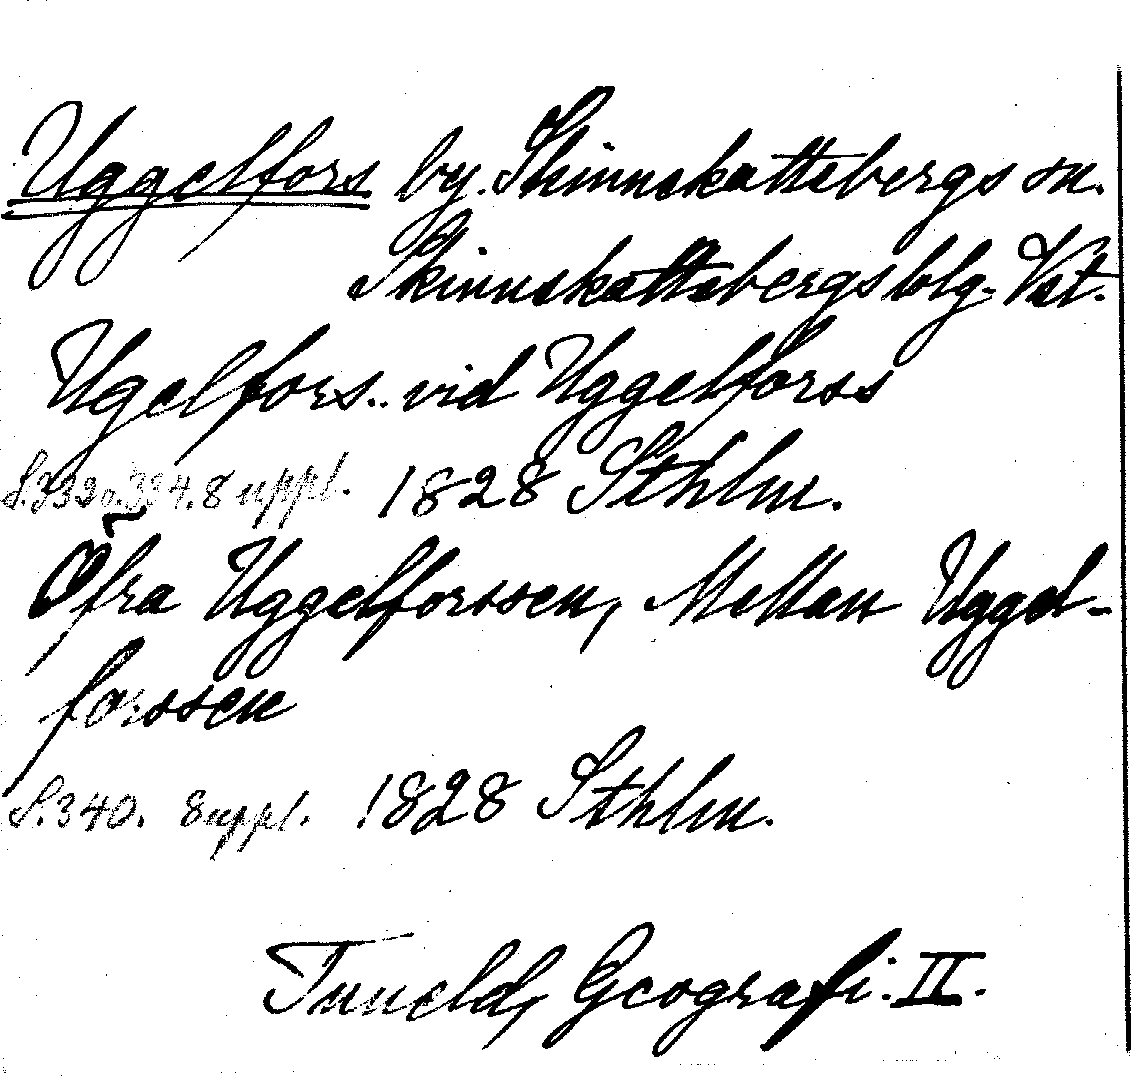 Uggelfors by. Skinnskattebergs sn.
Skinnskattebergsblg. Vst.
Ugelfors.. vid Uggelforss
S.339 o. 394. Suppl. 1828 Sthlm.
Öfra Uggelforssen, Mellan Uggel-
forssen
S.340. Suppl. 1828 Sthlm.
Tuneld, Geografi. II.